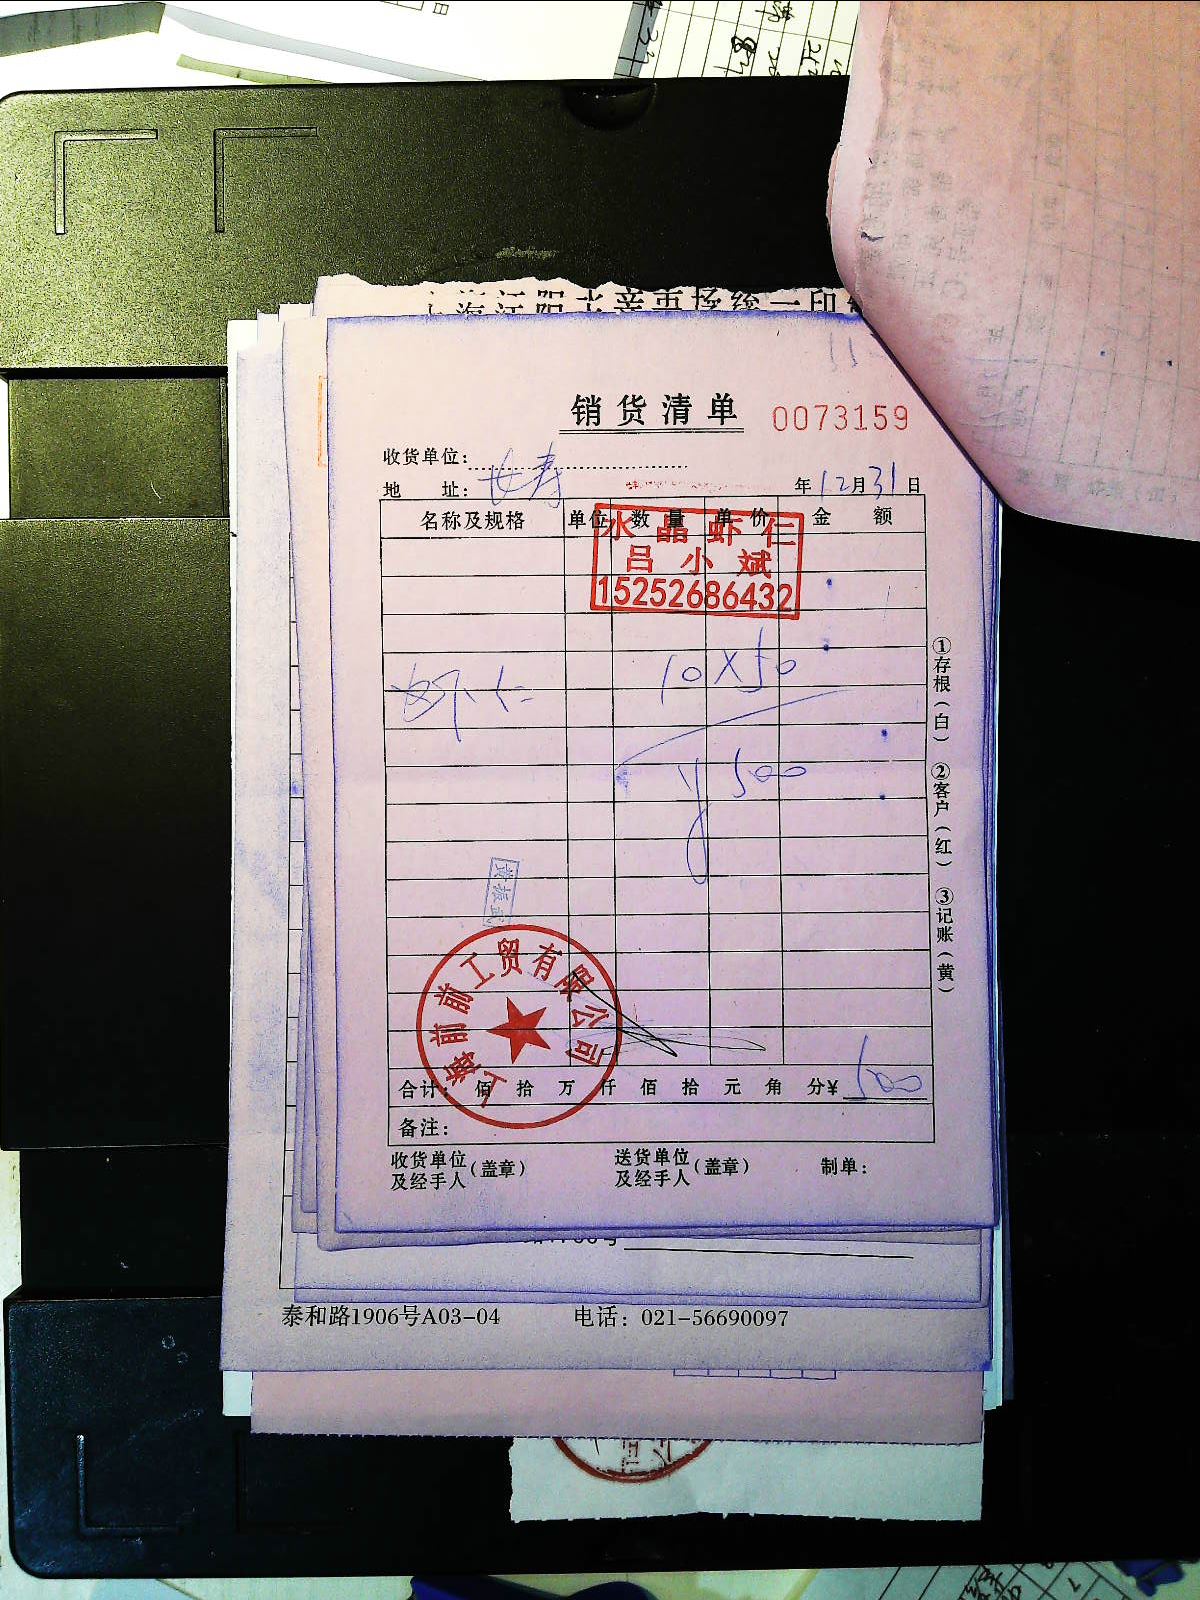 销货清单 0073159
收货单位:
地 址: 长寿 年12月31日
名称及规格 单位 数量 单价 金 额
水晶虾仁
吕小斌
15252686432
虾仁 10×50
¥500
黄振武
上海前前工贸有限公司
合计: 佰 拾 万 仟 佰 拾 元 角 分¥ 500
备注:
收货单位及经手人(盖章) 送货单位及经手人(盖章) 制单:
①存根(白) ②客户(红) ③记账(黄)
泰和路1906号A03-04 电话: 021-56690097